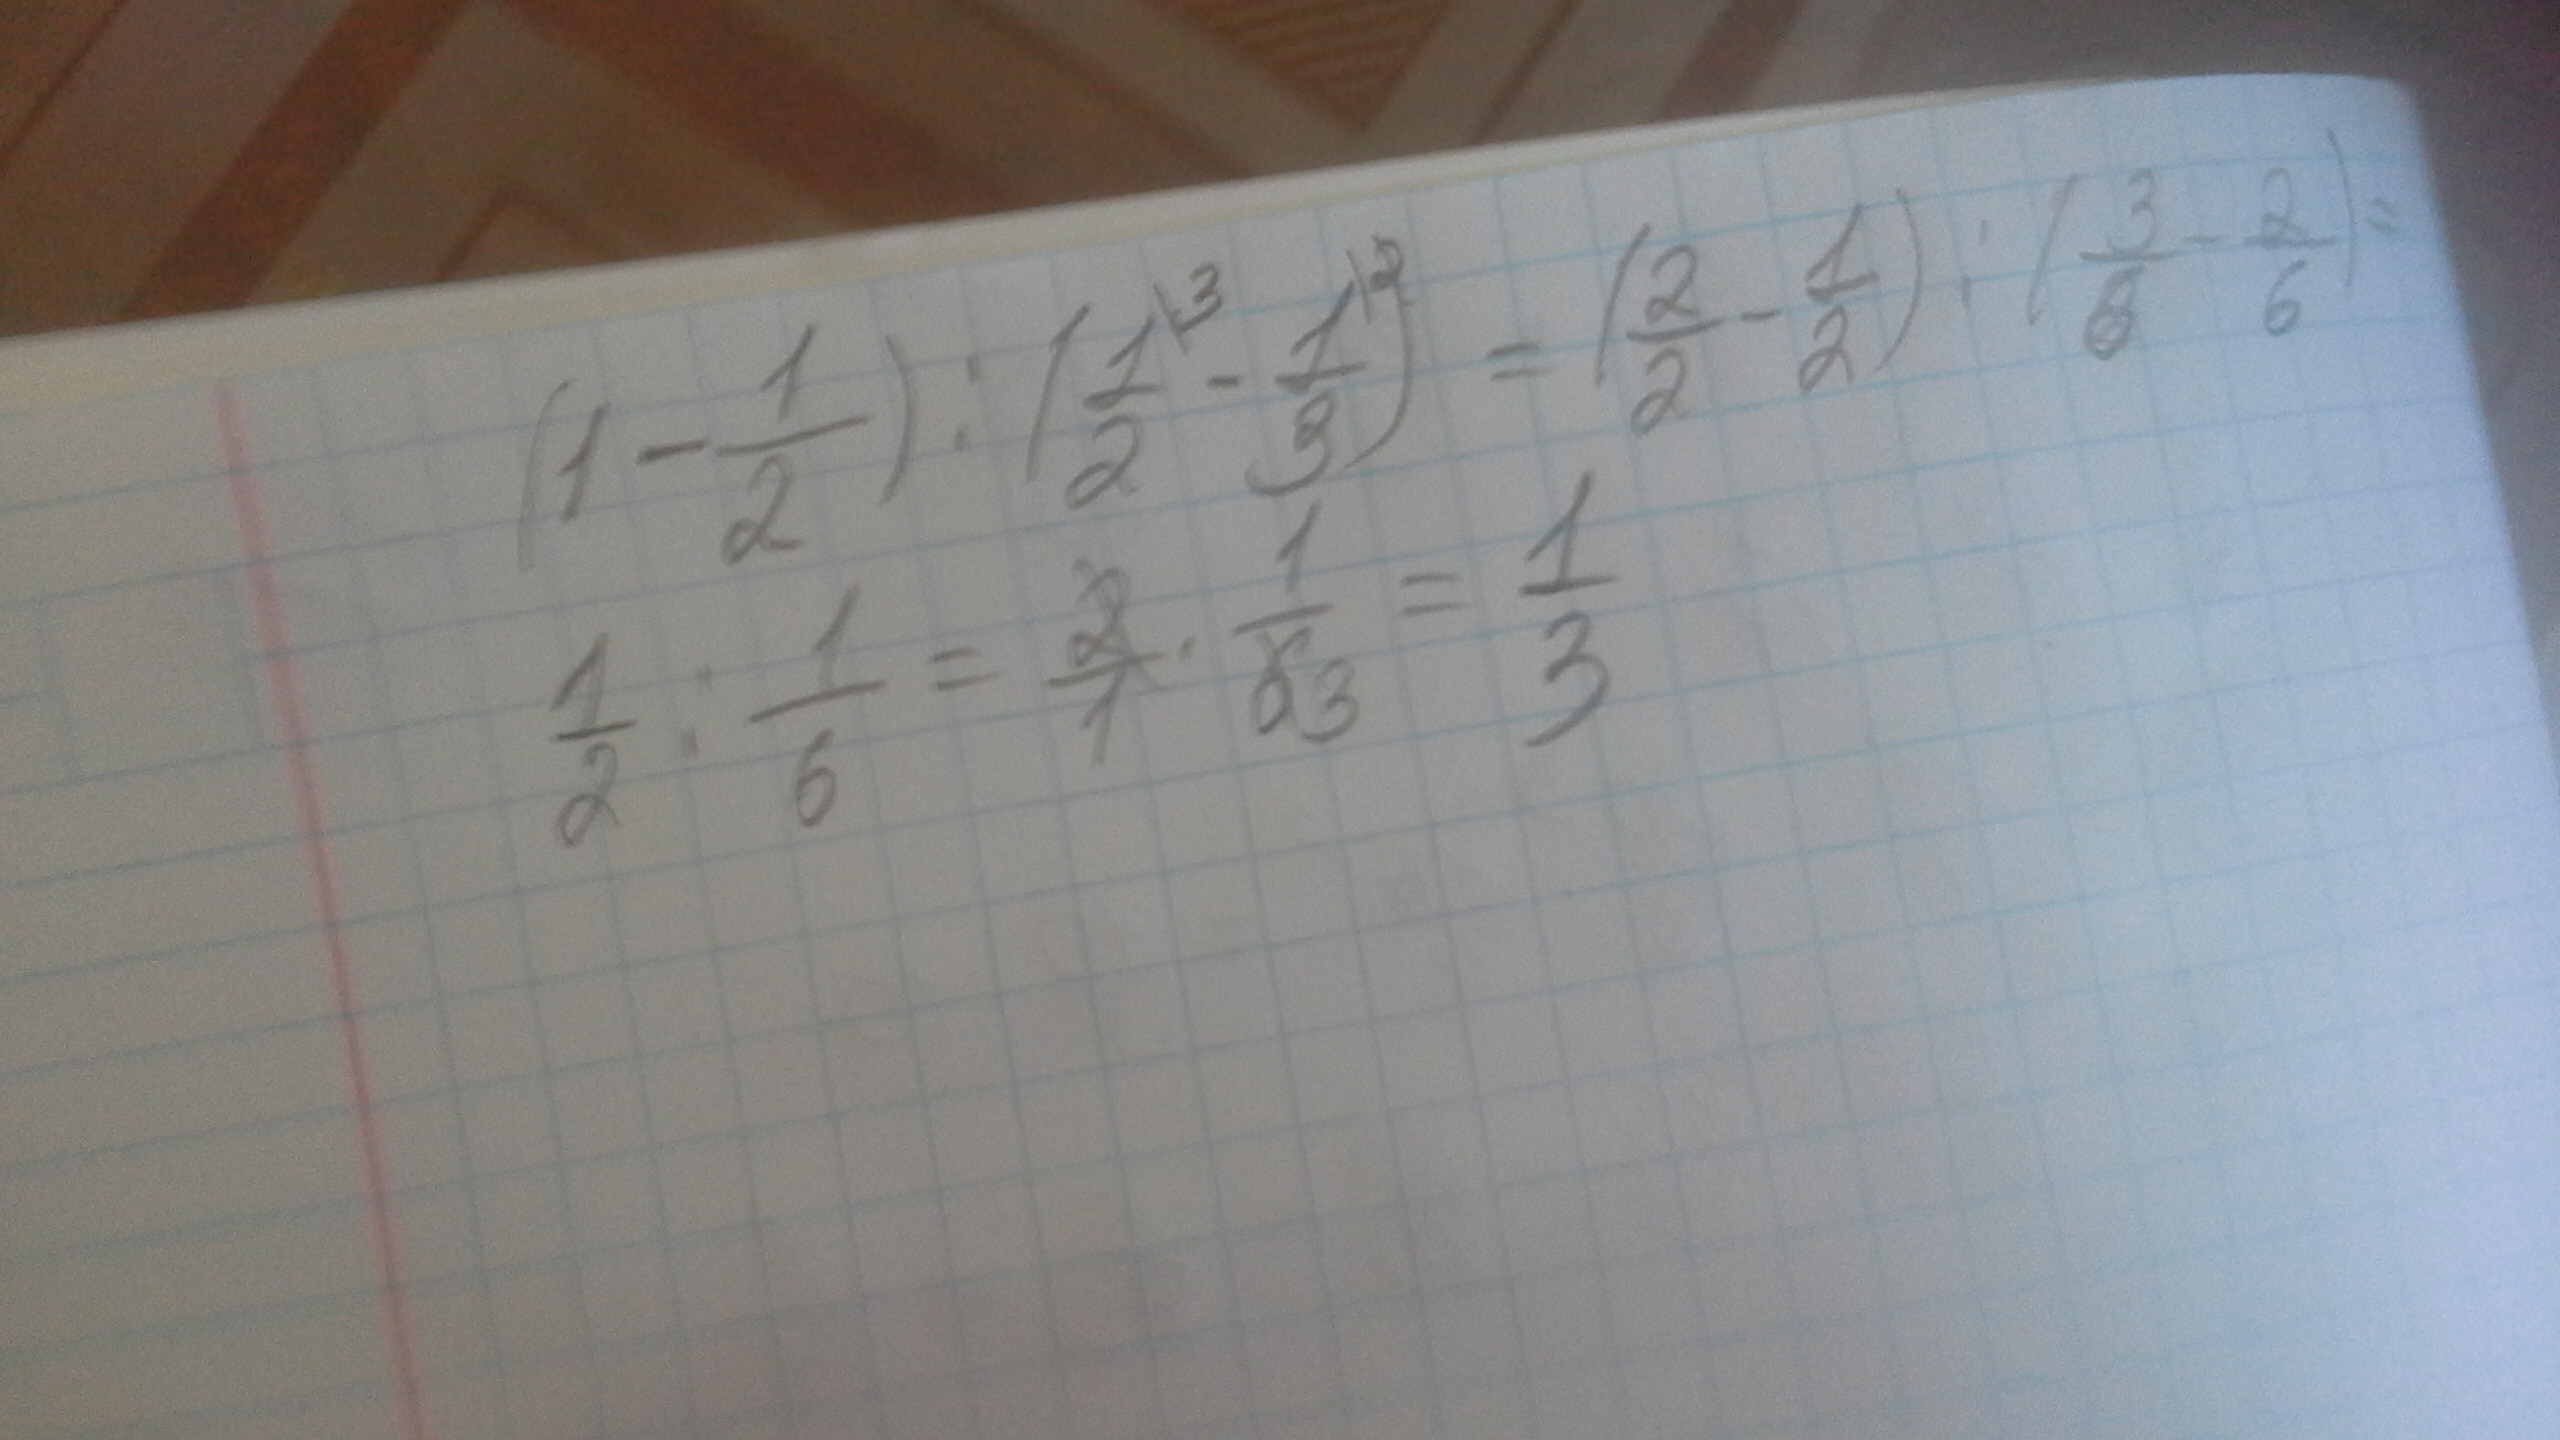 (1 - 1/2) : (1/2\3 - 1/3\2) = (2/2 - 1/2) : (3/6 - 2/6) =
1/2 : 1/6 = 2/1 · 1/6 3 = 1/3